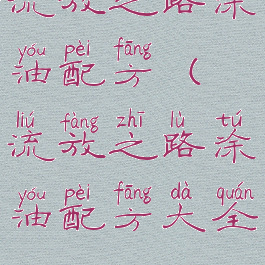 流放之路涂
yóu pèi fāng
油配方（
liú fàng zhī lù tú
流放之路涂
yóu pèi fāng dà quán
油配方大全